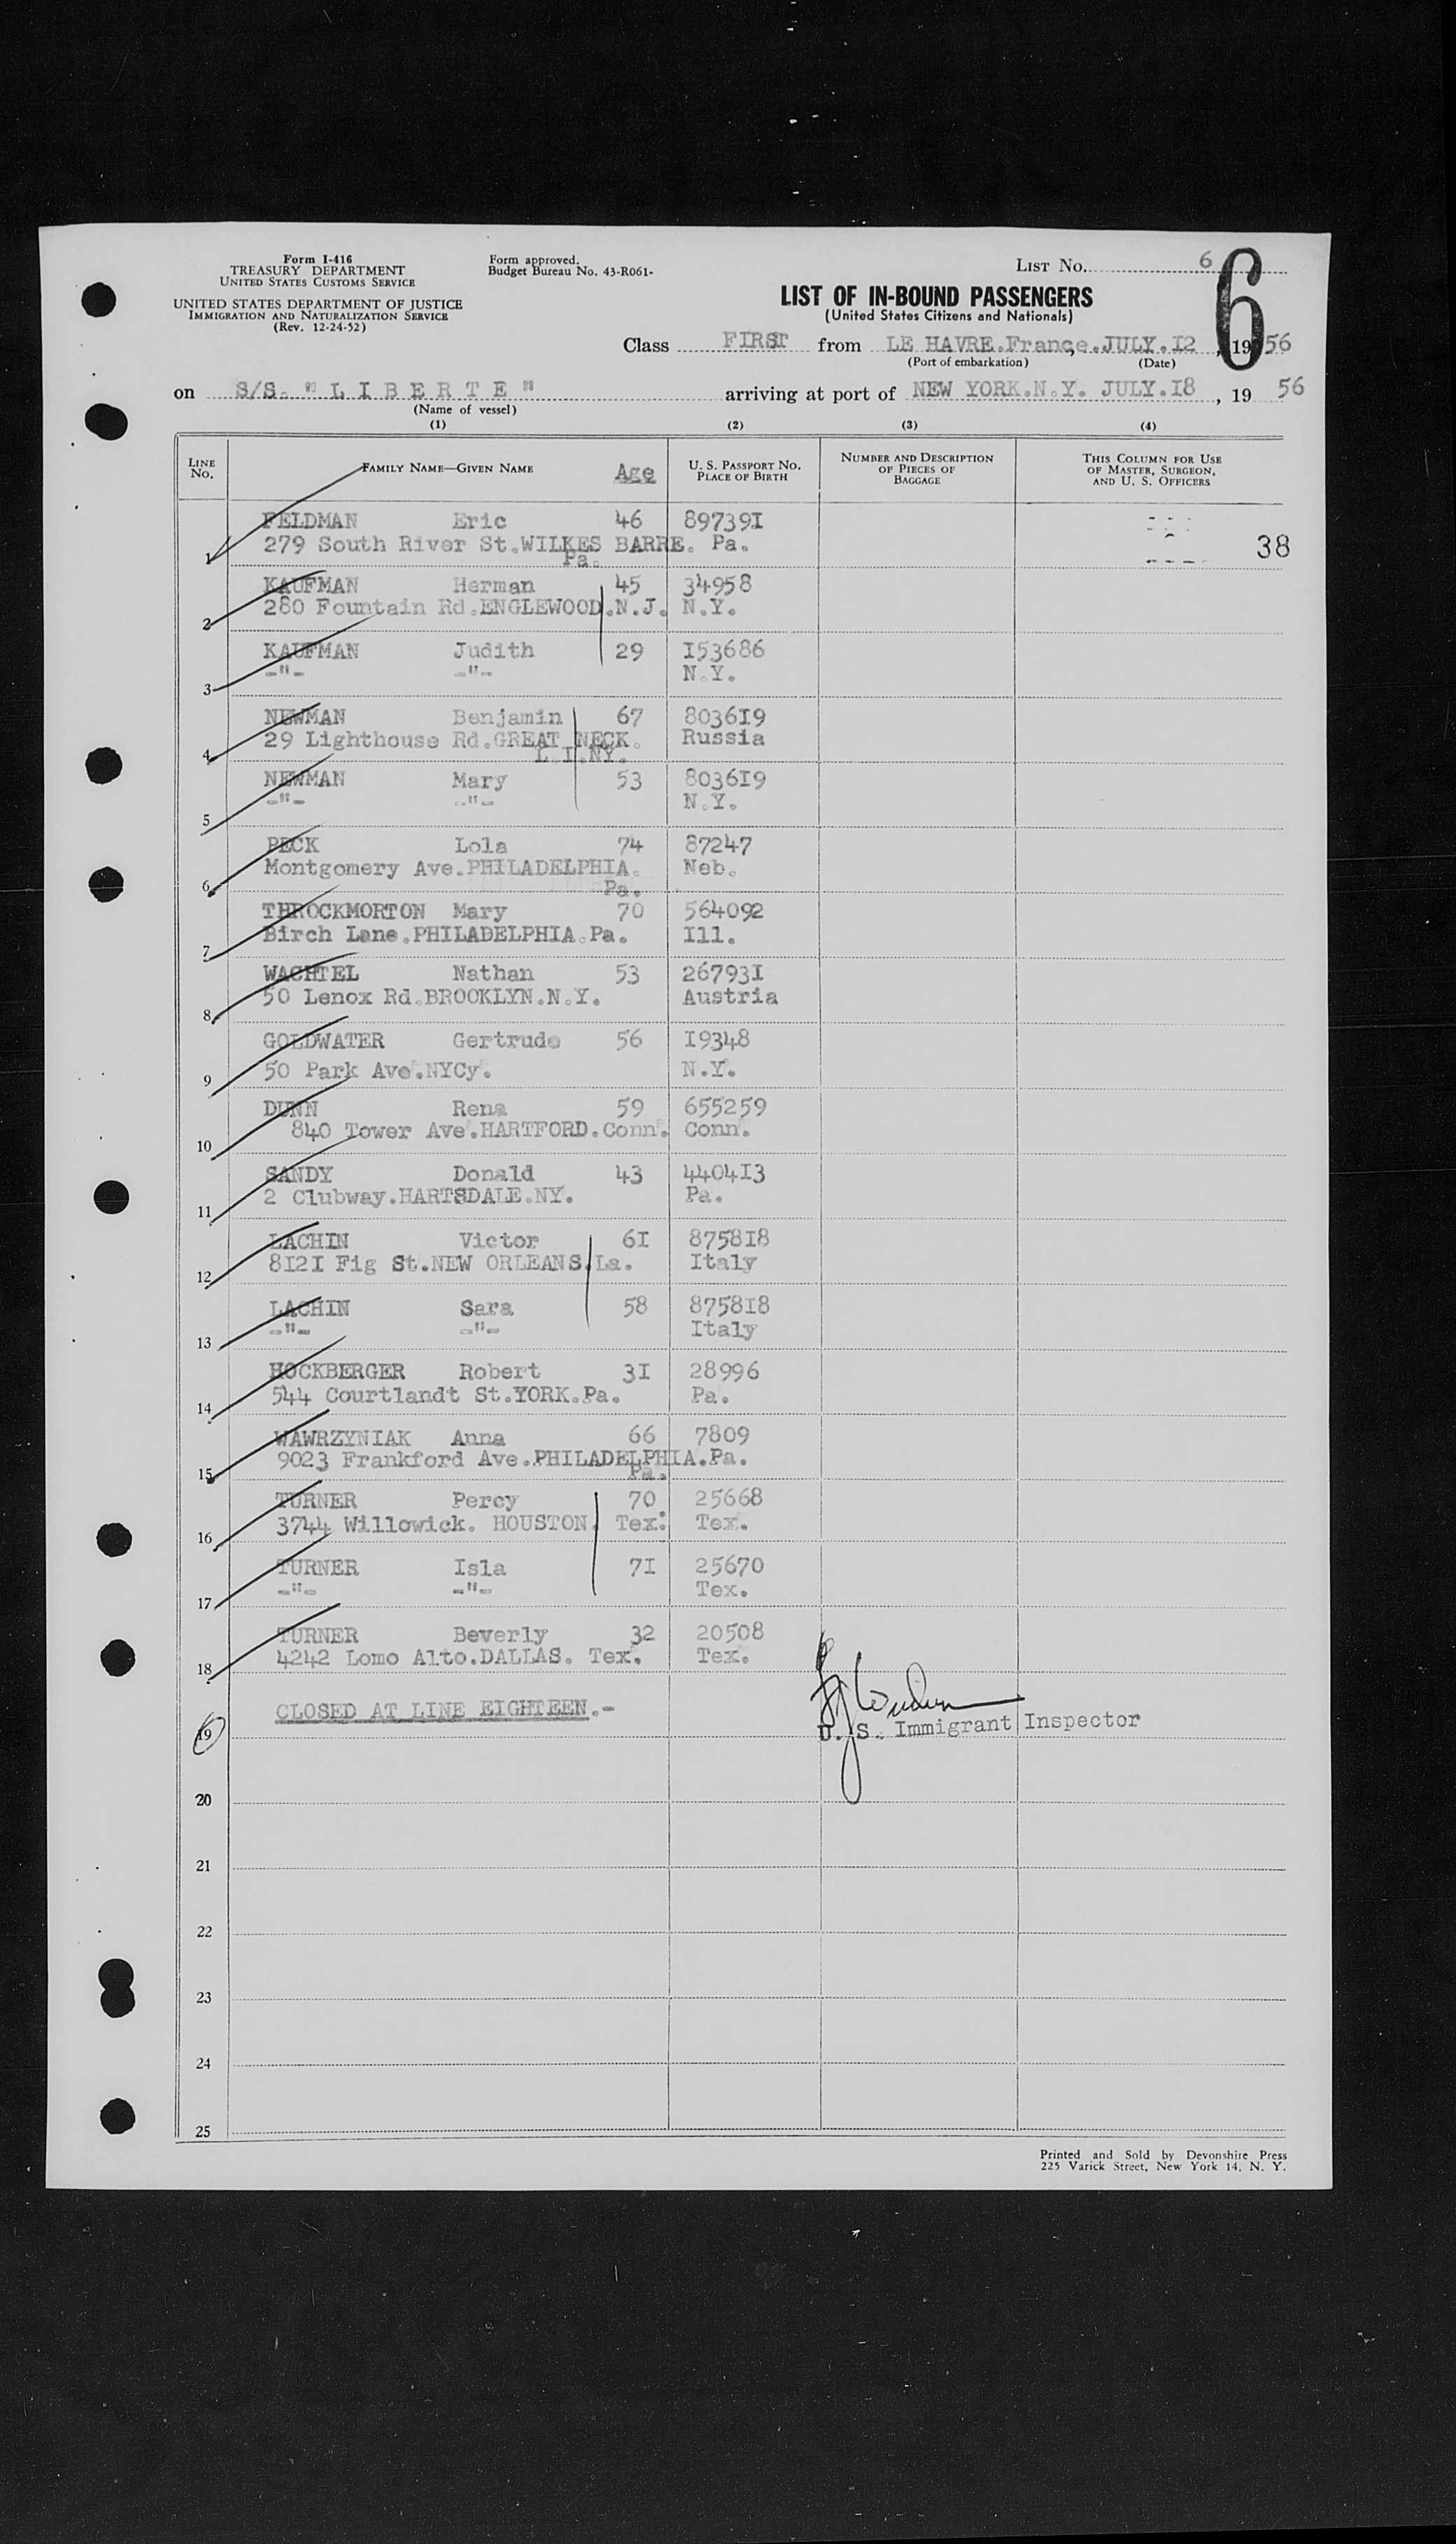 Form I-416
TREASURY DEPARTMENT
UNITED STATES CUSTOMS SERVICE
UNITED STATES DEPARTMENT OF JUSTICE
IMMIGRATION AND NATURALIZATION SERVICE
(Rev. 12-24-52)
Form approved.
Budget Bureau No. 43-R061-
LIST No. 6
6
LIST OF IN-BOUND PASSENGERS
(United States Citizens and Nationals)
Class FIRST from LE HAVRE.France.JULY.12, 1956
(Port of embarkation) (Date)
on S/S. "LIBERTE" arriving at port of NEW YORK.N.Y. JULY.18, 19 56
(Name of vessel)
(1) (2) (3) (4)
LINE No. FAMILY NAME—GIVEN NAME Age U. S. PASSPORT NO. PLACE OF BIRTH NUMBER AND DESCRIPTION OF PIECES OF BAGGAGE THIS COLUMN FOR USE OF MASTER, SURGEON, AND U. S. OFFICERS
FELDMAN Eric 46 897391
1 279 South River St.WILKES BARRE. Pa. 38
Pa.
KAUFMAN Herman 45 34958
2 280 Fountain Rd.ENGLEWOOD.N.J. N.Y.
KAUFMAN Judith 29 153686
3 -"- -"- N.Y.
NEWMAN Benjamin 67 803619
4 29 Lighthouse Rd.GREAT NECK. Russia
L.I.NY.
NEWMAN Mary 53 803619
5 -"- -"- N.Y.
PECK Lola 74 87247
6 Montgomery Ave.PHILADELPHIA. Neb.
Pa.
THROCKMORTON Mary 70 564092
7 Birch Lane.PHILADELPHIA.Pa. Ill.
WACHTEL Nathan 53 267931
8 50 Lenox Rd.BROOKLYN.N.Y. Austria
GOLDWATER Gertrude 56 19348
9 50 Park Ave.NYCy. N.Y.
DUNN Rena 59 655259
10 840 Tower Ave.HARTFORD.Conn. Conn.
SANDY Donald 43 440413
11 2 Clubway.HARTSDALE.NY. Pa.
LACHIN Victor 61 875818
12 8121 Fig St.NEW ORLEANS.La. Italy
LACHIN Sara 58 875818
13 -"- -"- Italy
HOCKBERGER Robert 31 28996
14 544 Courtlandt St.YORK.Pa. Pa.
WAWRZYNIAK Anna 66 7809
15 9023 Frankford Ave.PHILADELPHIA.Pa.
Pa.
TURNER Percy 70 25668
16 3744 Willowick. HOUSTON. Tex. Tex.
TURNER Isla 71 25670
17 -"- -"- Tex.
TURNER Beverly 32 20508
18 4242 Lomo Alto.DALLAS. Tex. Tex.
CLOSED AT LINE EIGHTEEN.-
19 U. S. Immigrant Inspector
20
21
22
23
24
25
Printed and Sold by Devonshire Press
225 Varick Street, New York 14, N. Y.